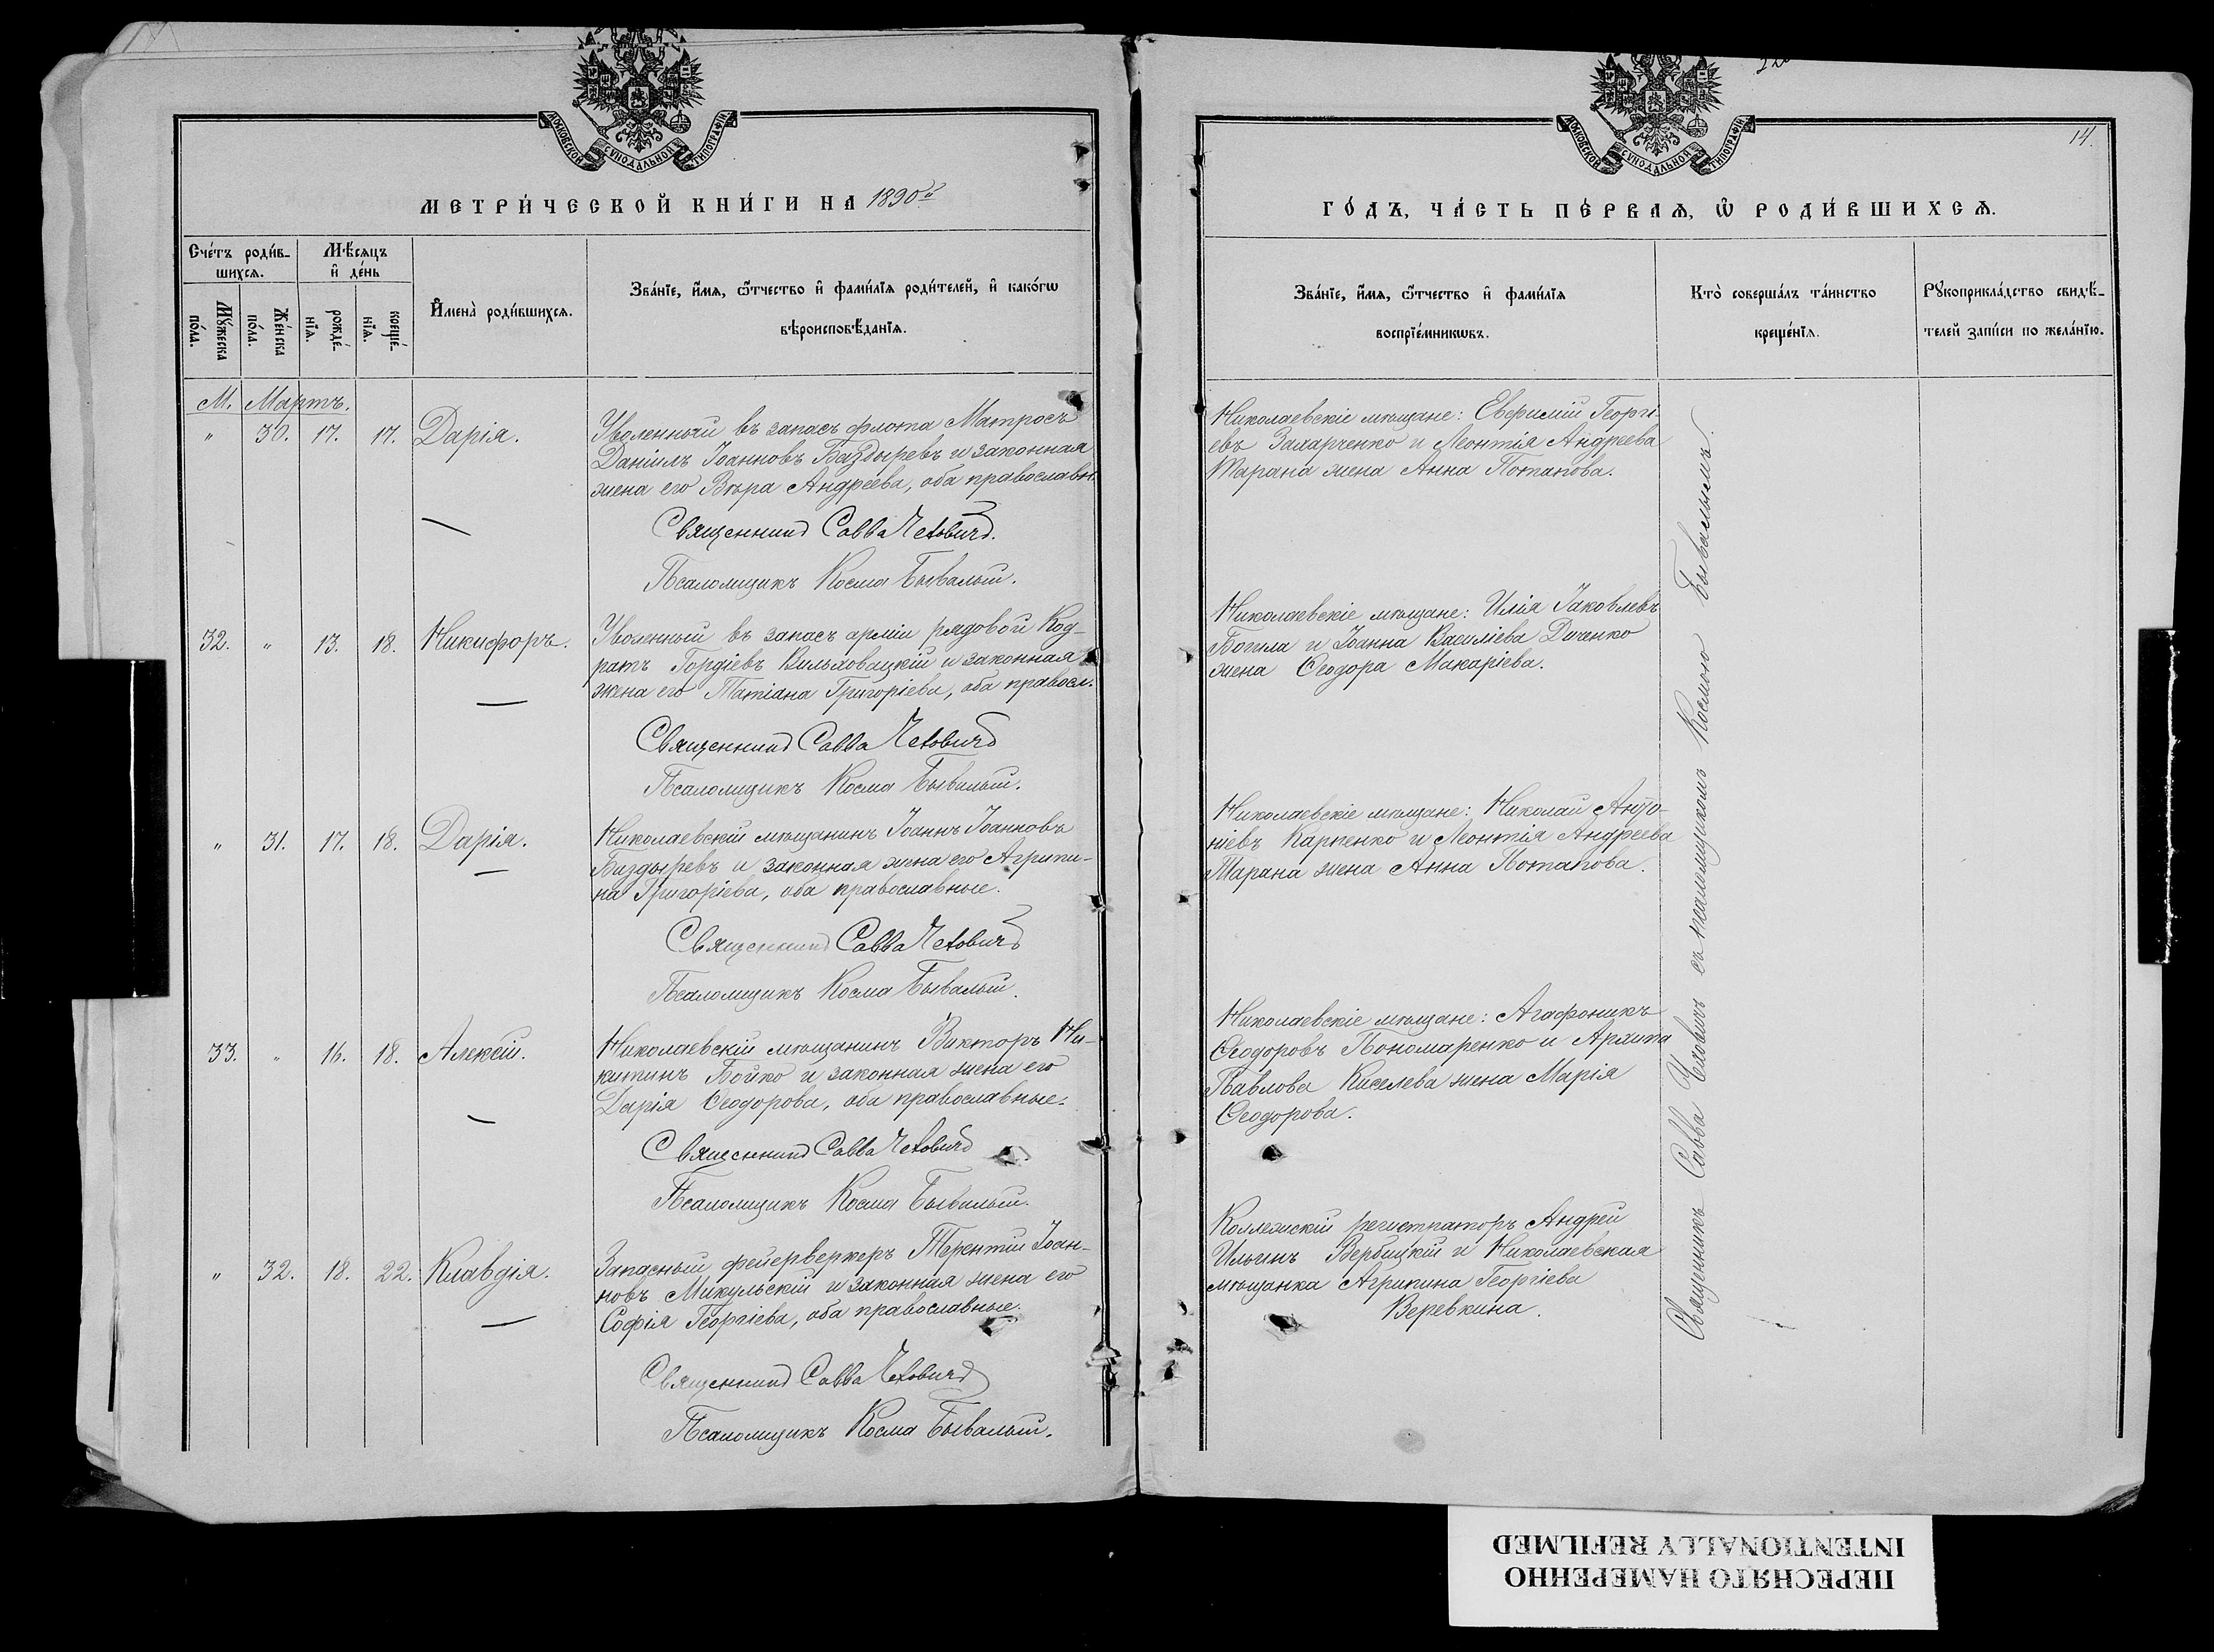 МОСКОВСКОЙ СѴНОДАЛЬНОЙ ТИПОГРАФІИ
МЕТРИ́ЧЕСКОЙ КНИ́ГИ НА 1890й
Сче́тъ роди́в-
шихсѧ.
Мѣ́сѧцъ
и҆ де́нь
Мꙋ́жеска
по́ла.
Же́нска
по́ла.
рожде́-
нїѧ.
креще́-
нїѧ.
И҆мена̀ роди́вшихсѧ.
Зва́нїе, и҆́мѧ, ѻ҆́тчество и҆ фами́лїѧ роди́телей, и҆ како́гѡ
вѣроисповѣ́данїѧ.
М. Мартъ.
" 30. 17. 17. Дарія.
Уволенный въ запасъ флота Матросъ
Даніилъ Іоанновъ Баздыревъ и законная
жена его Вѣра Андреева, оба православн.
Священникъ Савва Чехович.
Псаломщикъ Косма Бывалый.
32. " 13. 18. Никифоръ.
Уволенный въ запасъ арміи рядовой Код-
ратъ Гордіевъ Вильховацкій и законная
жена его Татіана Григоріева, оба правосл.
Священникъ Савва Чеховичъ
Псаломщикъ Косма Бывалый.
" 31. 17. 18. Дарія.
Николаевскій мѣщанинъ Іоаннъ Іоанновъ
Баздыревъ и законная жена его Агрипи-
на Григоріева, оба православные.
Священникъ Савва Чеховичъ
Псаломщикъ Косма Бывалый.
33. " 16. 18. Алексій.
Николаевскій мѣщанинъ Викторъ Ни-
китинъ Бойко и законная жена его
Дарія Ѳеодорова, оба православные.
Священникъ Савва Чеховичъ
Псаломщикъ Косма Бывалый.
" 32. 18. 22. Клавдія.
Запасный фейерверкеръ Терентій Іоан-
новъ Микульскій и законная жена его
Софія Георгіева, оба православные.
Священникъ Савва Чеховичъ
Псаломщикъ Косма Бывалый.
МОСКОВСКОЙ СѴНОДАЛЬНОЙ ТИПОГРАФІИ
14.
ГО́ДЪ, ЧА́СТЬ ПЕ́РВАѦ, Ѡ҆ РОДИ́ВШИХСѦ.
Зва́нїе, и҆́мѧ, ѻ҆́тчество и҆ фами́лїѧ
воспрїе́мникѡвъ.
Кто̀ соверша́лъ та́инство
креще́нїѧ.
Рꙋкоприкла́дство свидѣ́-
телей за́писи по жела́нїю.
Николаевскіе мѣщане: Евфимій Георгі-
евъ Захарченко и Леонтія Андреева
Тарана жена Анна Потапова.
Николаевскіе мѣщане: Илія Іаковлевъ
Богила и Іоанна Василіева Доценко
жена Ѳеодора Макаріева.
Николаевскіе мѣщане: Николай Анто-
ніевъ Карпенко и Леонтія Андреева
Тарана жена Анна Потапова.
Николаевскіе мѣщане: Агафоникъ
Ѳеодоровъ Пономаренко и Архипа
Павлова Киселева жена Марія
Ѳеодорова.
Коллежскій регистраторъ Андрей
Ильинъ Вербицкій и Николаевская
мѣщанка Агрипина Георгіева
Веревкина.
Священникъ Савва Чеховичъ съ псаломщикомъ Космою Бывалымъ.
ПЕРЕСНЯТО НАМЕРЕННО
INTENTIONALLY REFILMED